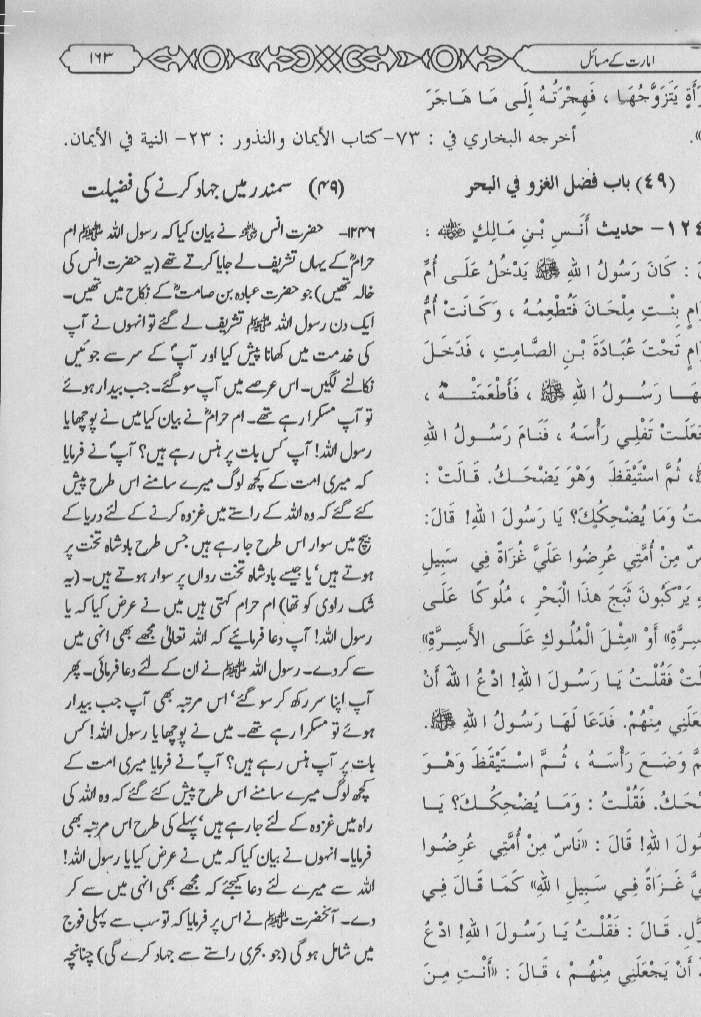 امارت کے مسائل
۱۶۳
رَأَةٍ يَتَزَوَّجُهَا ، فَهِجْرَتُهُ إِلَى مَا هَاجَرَ
».
أخرجه البخاري في : ٧٣- كتاب الأيمان والنذور : ٢٣- النية في الأيمان.
(٤٩) باب فضل الغزو في البحر
١٢٤- حديث أَنَسِ بْنِ مَالِكٍ ﷺ :
: كَانَ رَسُولُ اللهِ ﷺ يَدْخُلُ عَلَى أُمِّ
رَامٍ بِنْتِ مِلْحَانَ فَتُطْعِمُهُ ، وَكَانَتْ أُمُّ
رَامٍ تَحْتَ عُبَادَةَ بْنِ الصَّامِتِ ، فَدَخَلَ
هَا رَسُولُ اللهِ ﷺ ، فَأَطْعَمَتْهُ ،
جَعَلَتْ تَفْلِي رَأْسَهُ ، فَنَامَ رَسُولُ اللهِ
، ثُمَّ اسْتَيْقَظَ وَهُوَ يَضْحَكُ. قَالَتْ :
تُ وَمَا يُضْحِكُكَ؟ يَا رَسُولَ اللهِ! قَالَ:
سٌ مِنْ أُمَّتِي عُرِضُوا عَلَيَّ غُزَاةً فِي سَبِيلِ
يَرْكَبُونَ ثَبَجَ هذَا الْبَحْرِ ، مُلُوكًا عَلَى
سِرَّةِ» أَوْ «مِثْلَ الْمُلُوكِ عَلَى الأَسِرَّةِ»
لَتْ فَقُلْتُ يَا رَسُولَ اللهِ! ادْعُ اللهَ أَنْ
جْعَلَنِي مِنْهُمْ. فَدَعَا لَهَا رَسُولُ اللهِ ﷺ.
مَّ وَضَعَ رَأْسَهُ ، ثُمَّ اسْتَيْقَظَ وَهُوَ
ضْحَكُ. فَقُلْتُ : وَمَا يُضْحِكُكَ؟ يَا
سُولَ اللهِ! قَالَ : «نَاسٌ مِنْ أُمَّتِي عُرِضُوا
يَّ غَزَاةً فِي سَبِيلِ اللهِ» كَمَا قَالَ فِي
وَّلِ. قَالَ : فَقُلْتُ يَا رَسُولَ اللهِ! ادْعُ
أَنْ يَجْعَلَنِي مِنْهُمْ ، قَالَ : «أَنْتِ مِنَ
(۴۹) سمندر میں جہاد کرنے کی فضیلت
۱۲۴۶- حضرت انسؓ نے بیان کیا کہ رسول اللہ ﷺ ام
حرامؓ کے یہاں تشریف لے جایا کرتے تھے (یہ حضرت انس کی
خالہ تھیں) جو حضرت عبادہ بن صامتؓ کے نکاح میں تھیں۔
ایک دن رسول اللہ ﷺ تشریف لے گئے تو انہوں نے آپ
کی خدمت میں کھانا پیش کیا اور آپؐ کے سر سے جوئیں
نکالنے لگیں۔ اس عرصے میں آپ سو گئے۔ جب بیدار ہوئے
تو آپ مسکرا رہے تھے۔ ام حرامؓ نے بیان کیا میں نے پوچھا یا
رسول اللہ! آپ کس بات پر ہنس رہے ہیں؟ آپؐ نے فرمایا
کہ میری امت کے کچھ لوگ میرے سامنے اس طرح پیش
کئے گئے کہ وہ اللہ کے راستے میں غزوہ کرنے کے لئے دریا کے
بیچ میں سوار اس طرح جا رہے ہیں جس طرح بادشاہ تخت پر
ہوتے ہیں‘ یا جیسے بادشاہ تخت رواں پر سوار ہوتے ہیں۔ (یہ
شک راوی کو تھا) ام حرام کہتی ہیں میں نے عرض کیا کہ یا
رسول اللہ! آپ دعا فرمائیے کہ اللہ تعالیٰ مجھے بھی انہی میں
سے کر دے۔ رسول اللہ ﷺ نے ان کے لئے دعا فرمائی۔ پھر
آپ اپنا سر رکھ کر سو گئے‘ اس مرتبہ بھی آپ جب بیدار
ہوئے تو مسکرا رہے تھے۔ میں نے پوچھا یا رسول اللہ! کس
بات پر آپ ہنس رہے ہیں؟ آپؐ نے فرمایا میری امت کے
کچھ لوگ میرے سامنے اس طرح پیش کئے گئے کہ وہ اللہ کی
راہ میں غزوہ کے لئے جا رہے ہیں‘ پہلے کی طرح اس مرتبہ بھی
فرمایا۔ انہوں نے بیان کیا کہ میں نے عرض کیا یا رسول اللہ!
اللہ سے میرے لئے دعا کیجئے کہ مجھے بھی انہی میں سے کر
دے۔ آنحضرت ﷺ نے اس پر فرمایا کہ تو سب سے پہلی فوج
میں شامل ہو گی (جو بحری راستے سے جہاد کرے گی) چنانچہ